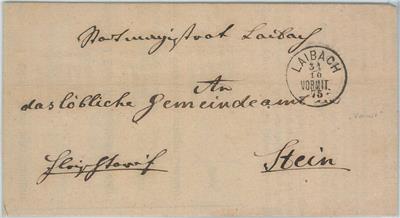 Stadtmagistrat Laibach
LAIBACH
31
10
VORMIT.
75
An
das löbliche Gemeindeamt in
Stein